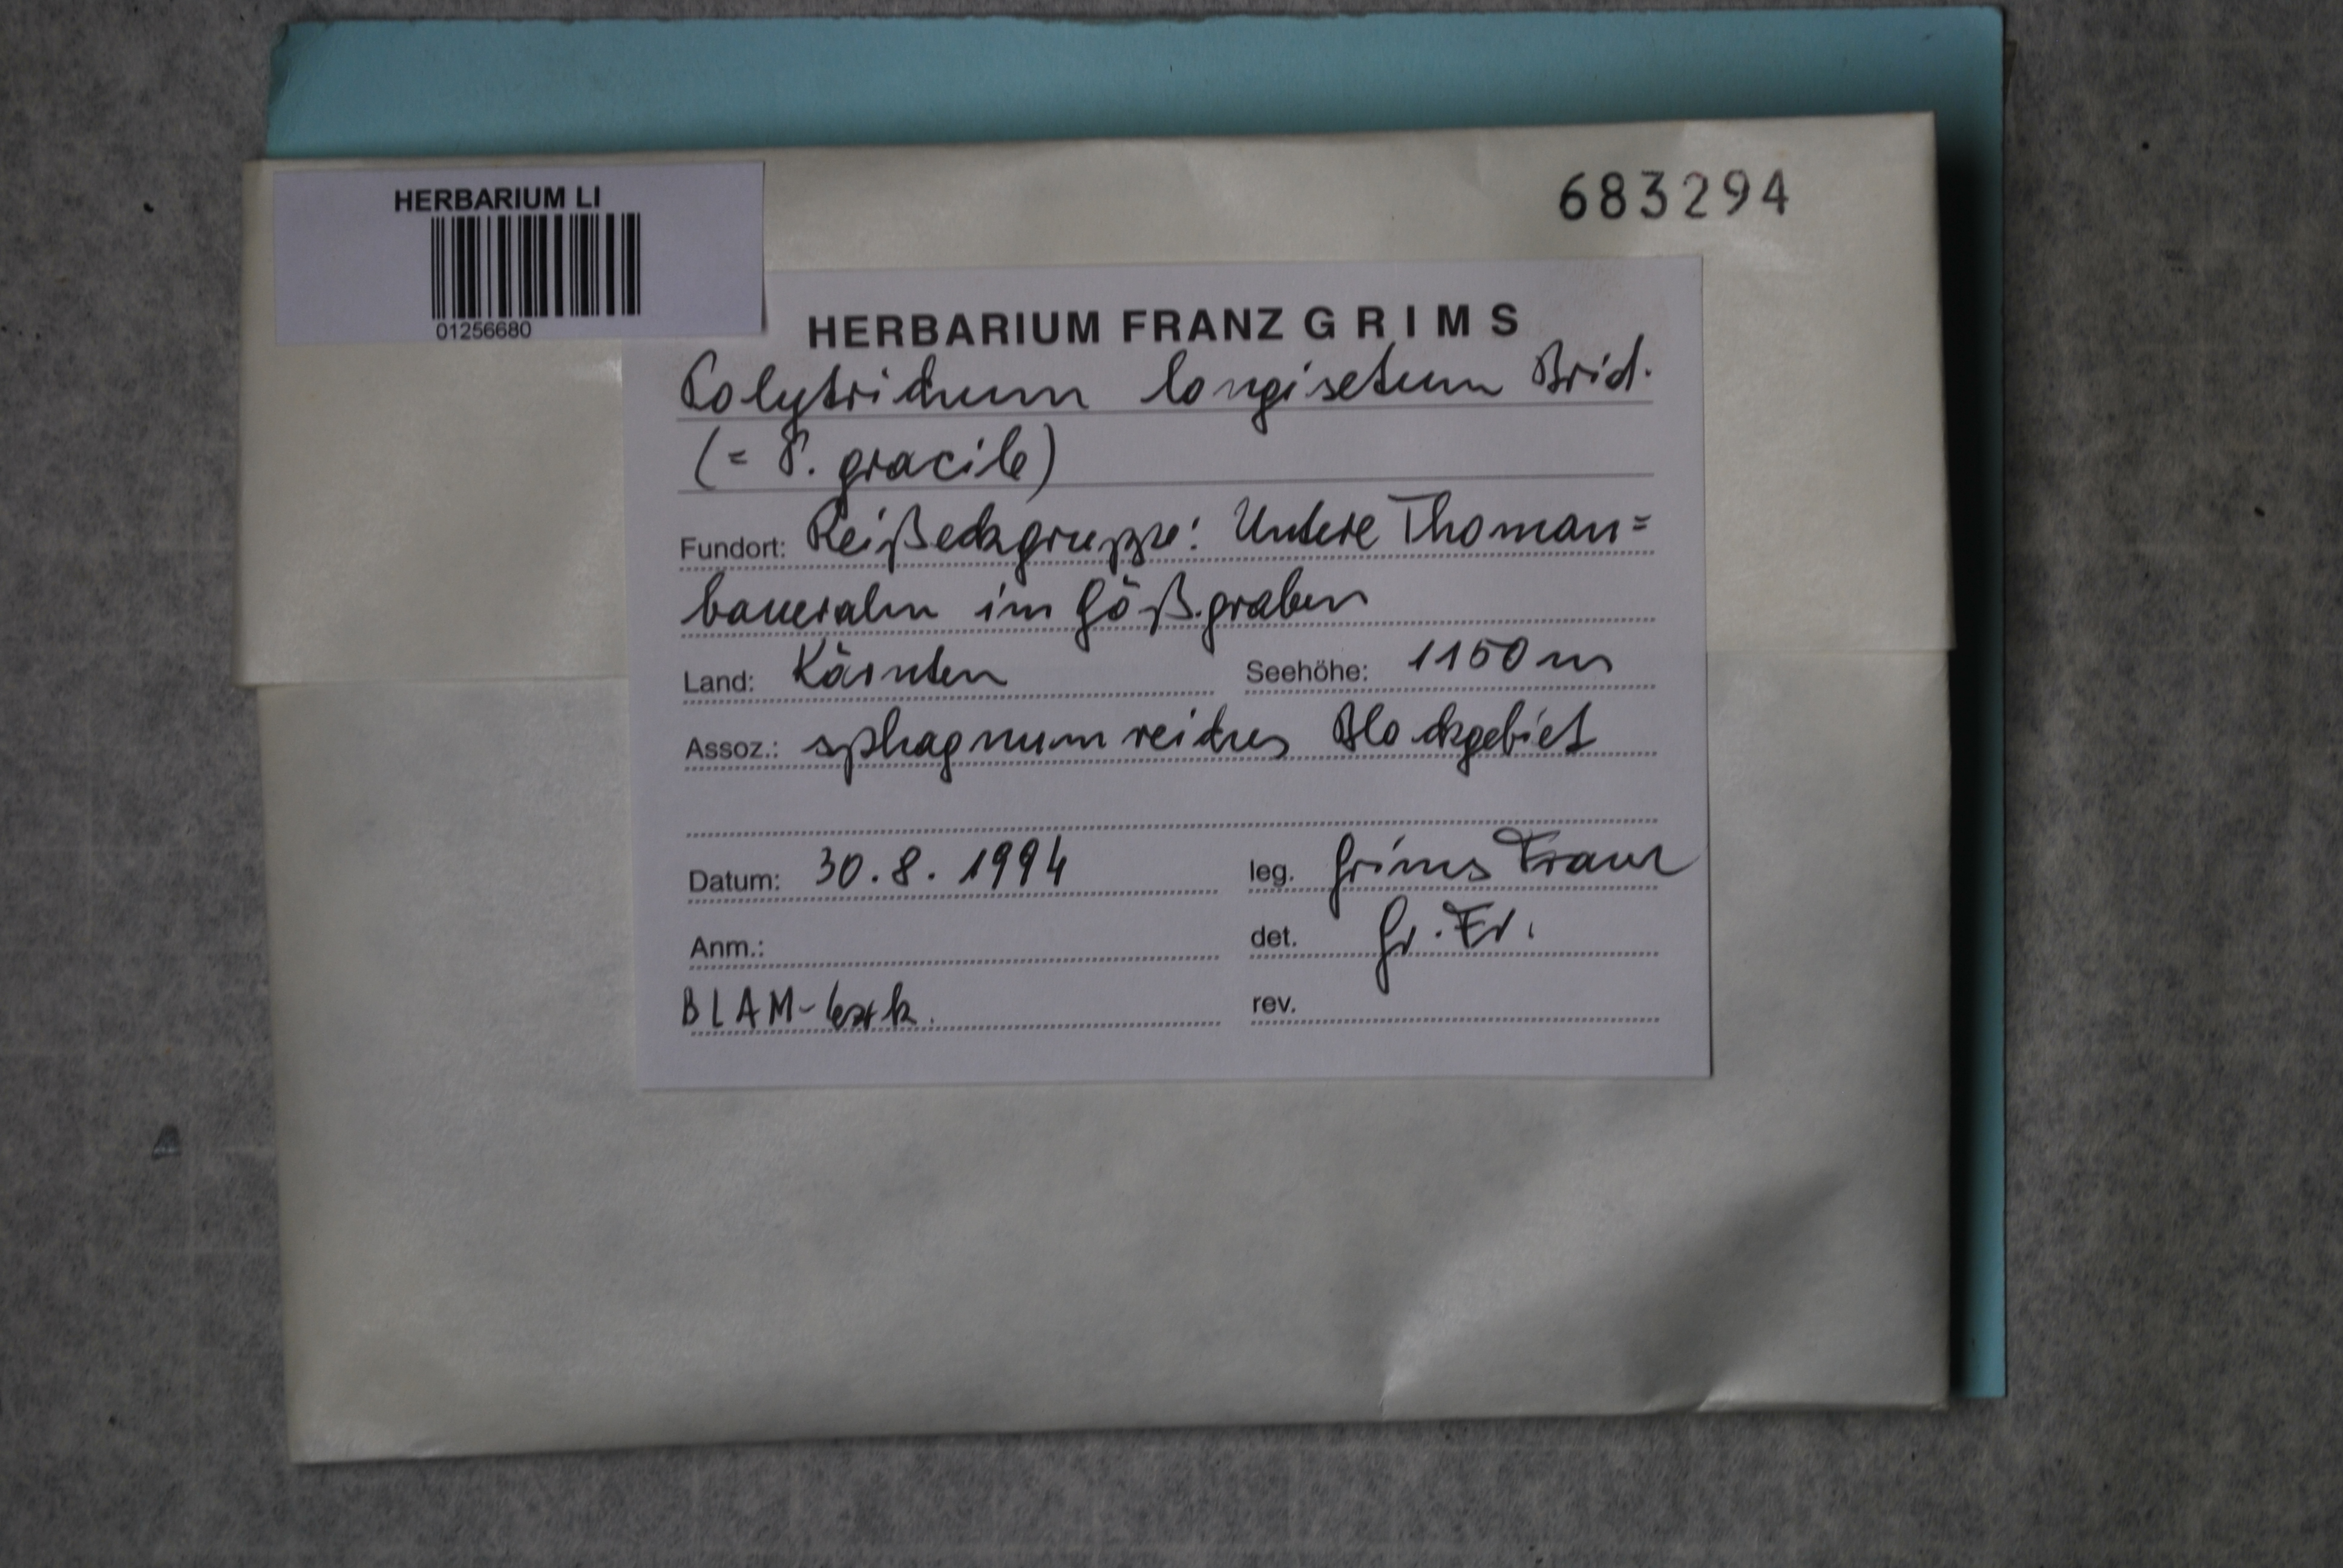 HERBARIUM LI
01256680
683294
HERBARIUM FRANZ GRIMS
Polytrichum longisetum Brid.
(= P. gracile)
Fundort: Reißeckgruppe: Untere Thoman=
baueralm im Gößgraben
Land: Kärnten Seehöhe: 1150 m
Assoz.: sphagnumreiches Blockgebiet
Datum: 30.8.1994 leg. Grims Franz
Anm.: det. Gr. Fr.
BLAM- rev.